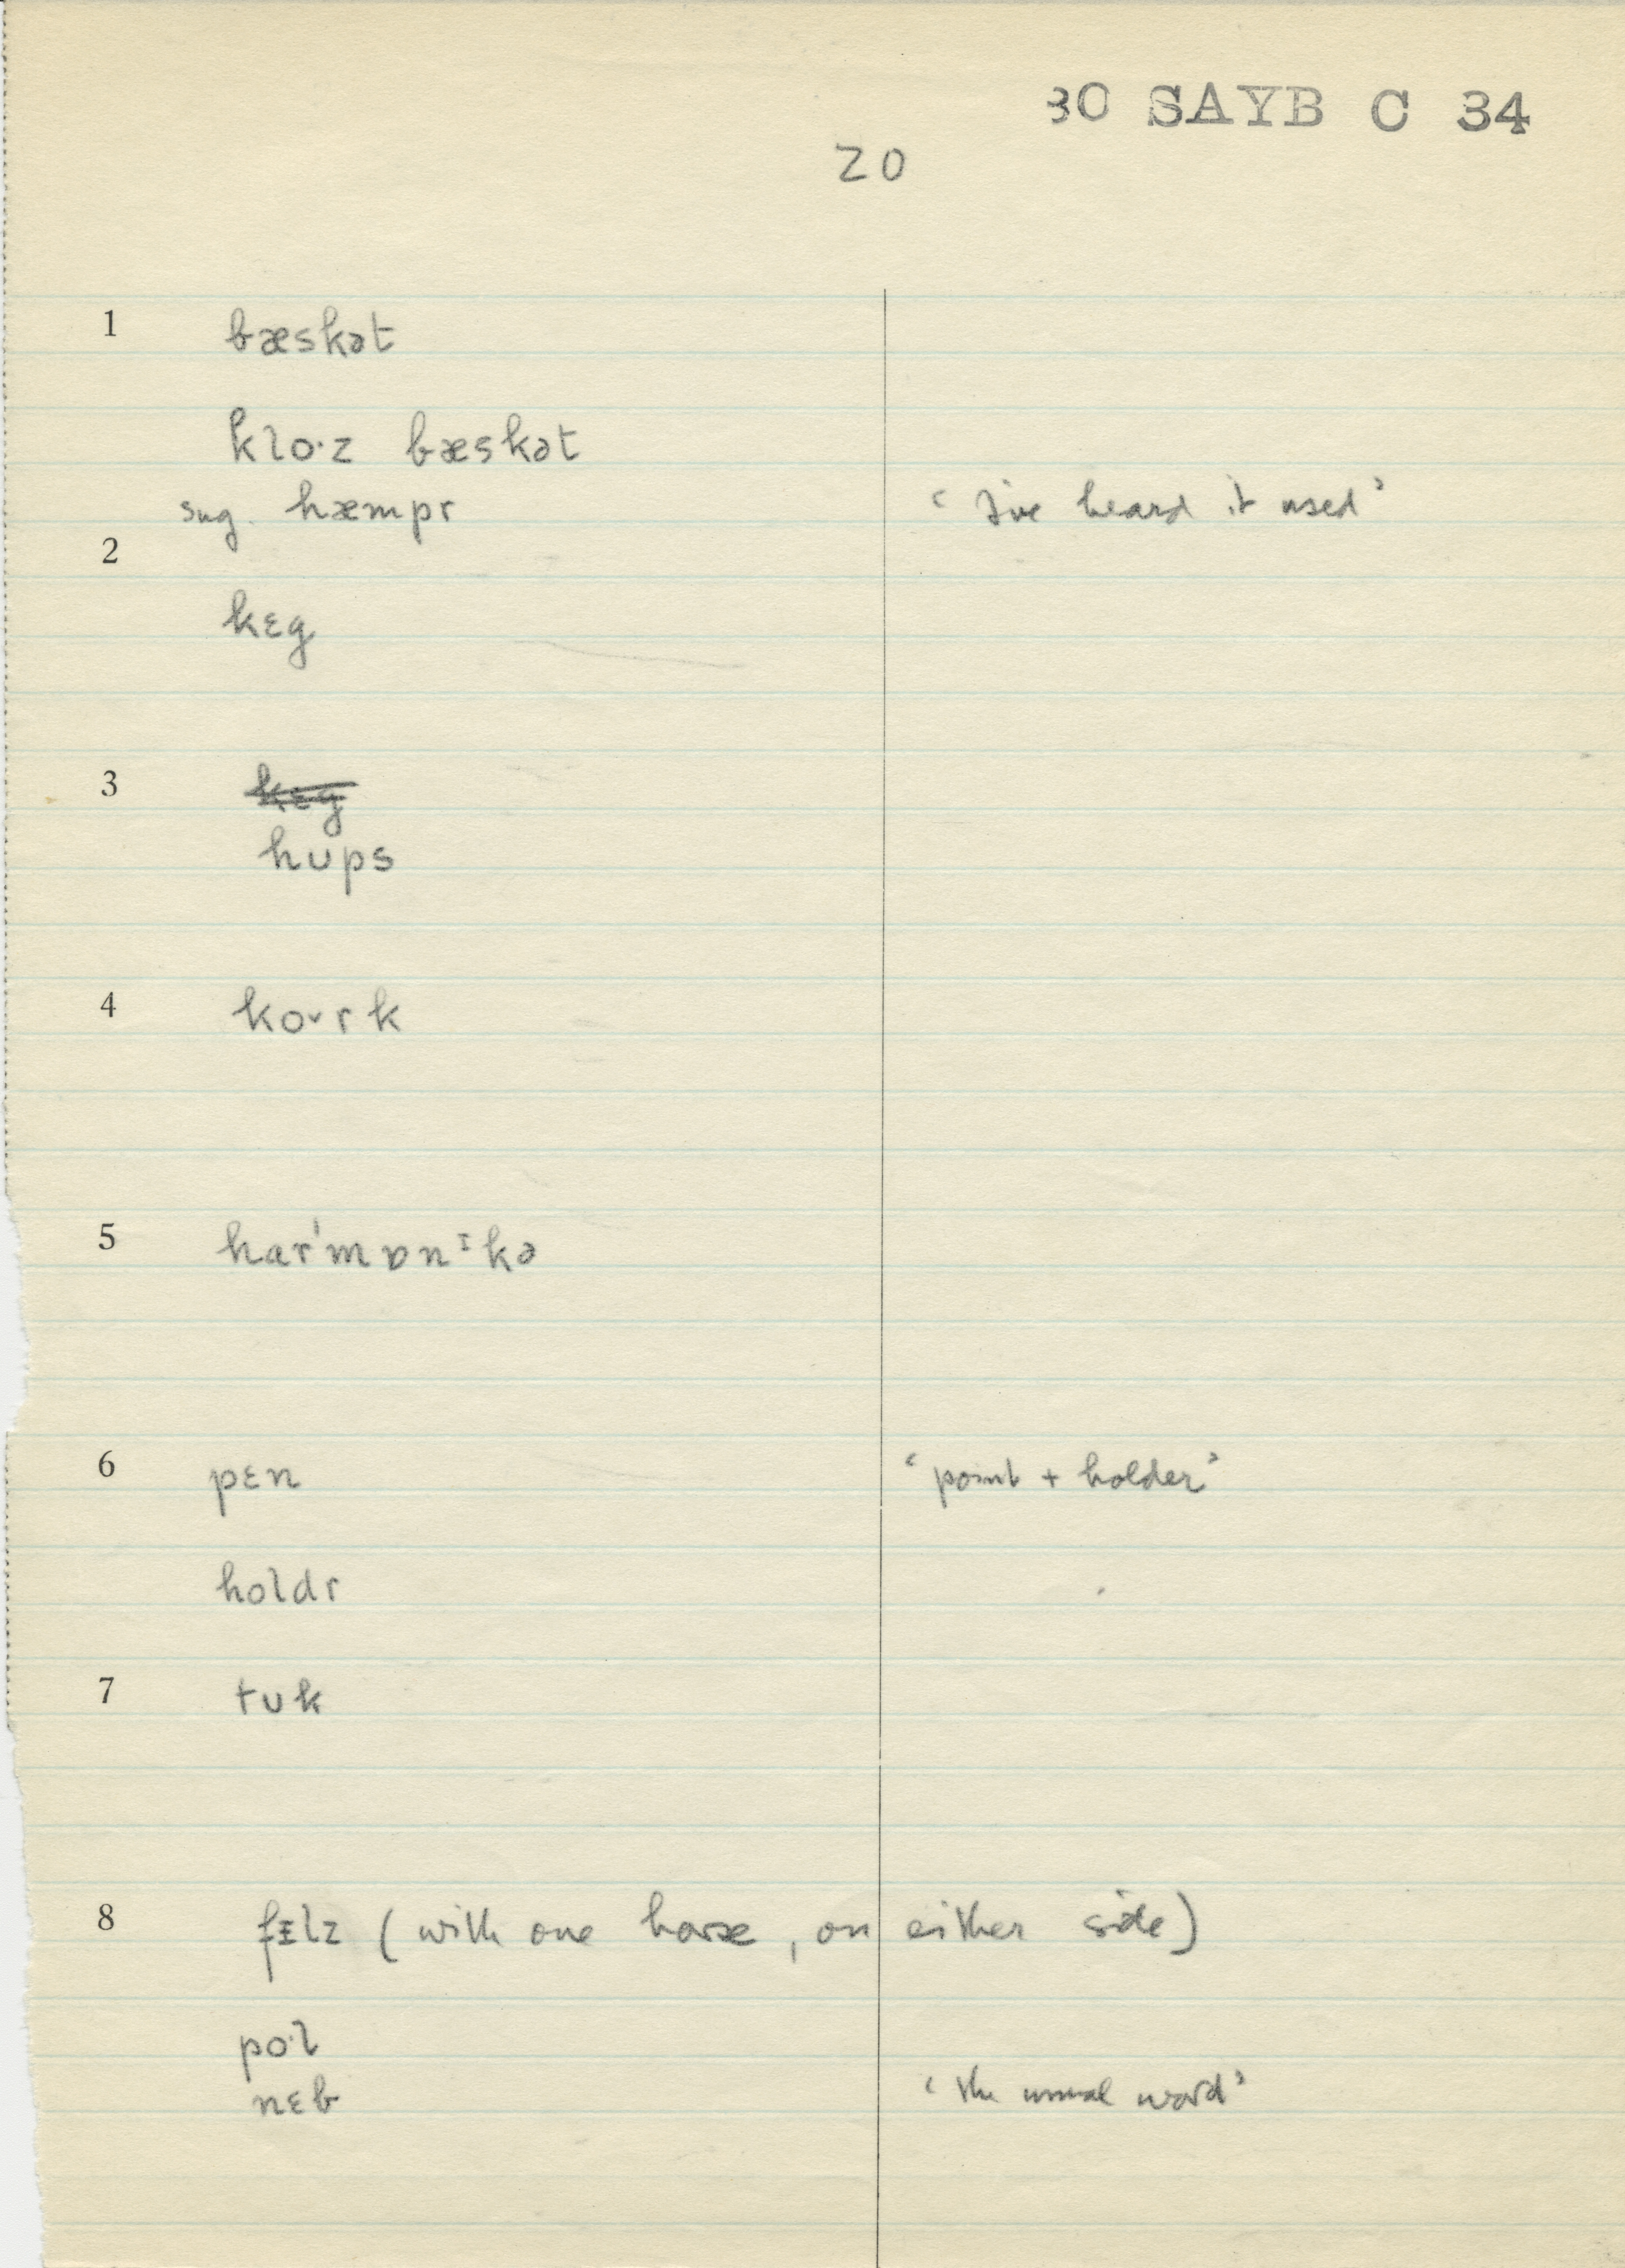 30 SAYB C 34
20
1 bæskət
klo·z bæskət
sug. hæmpr 'I've heard it used'
2
kɛg
3 kɛg
hups
4 ko˅rk
5 har'mɒnɪkə
6 pɛn 'point + holder'
holdr
7 tuk
8 fɪlz (with one horse, on either side)
po·l
nɛb 'the usual word'